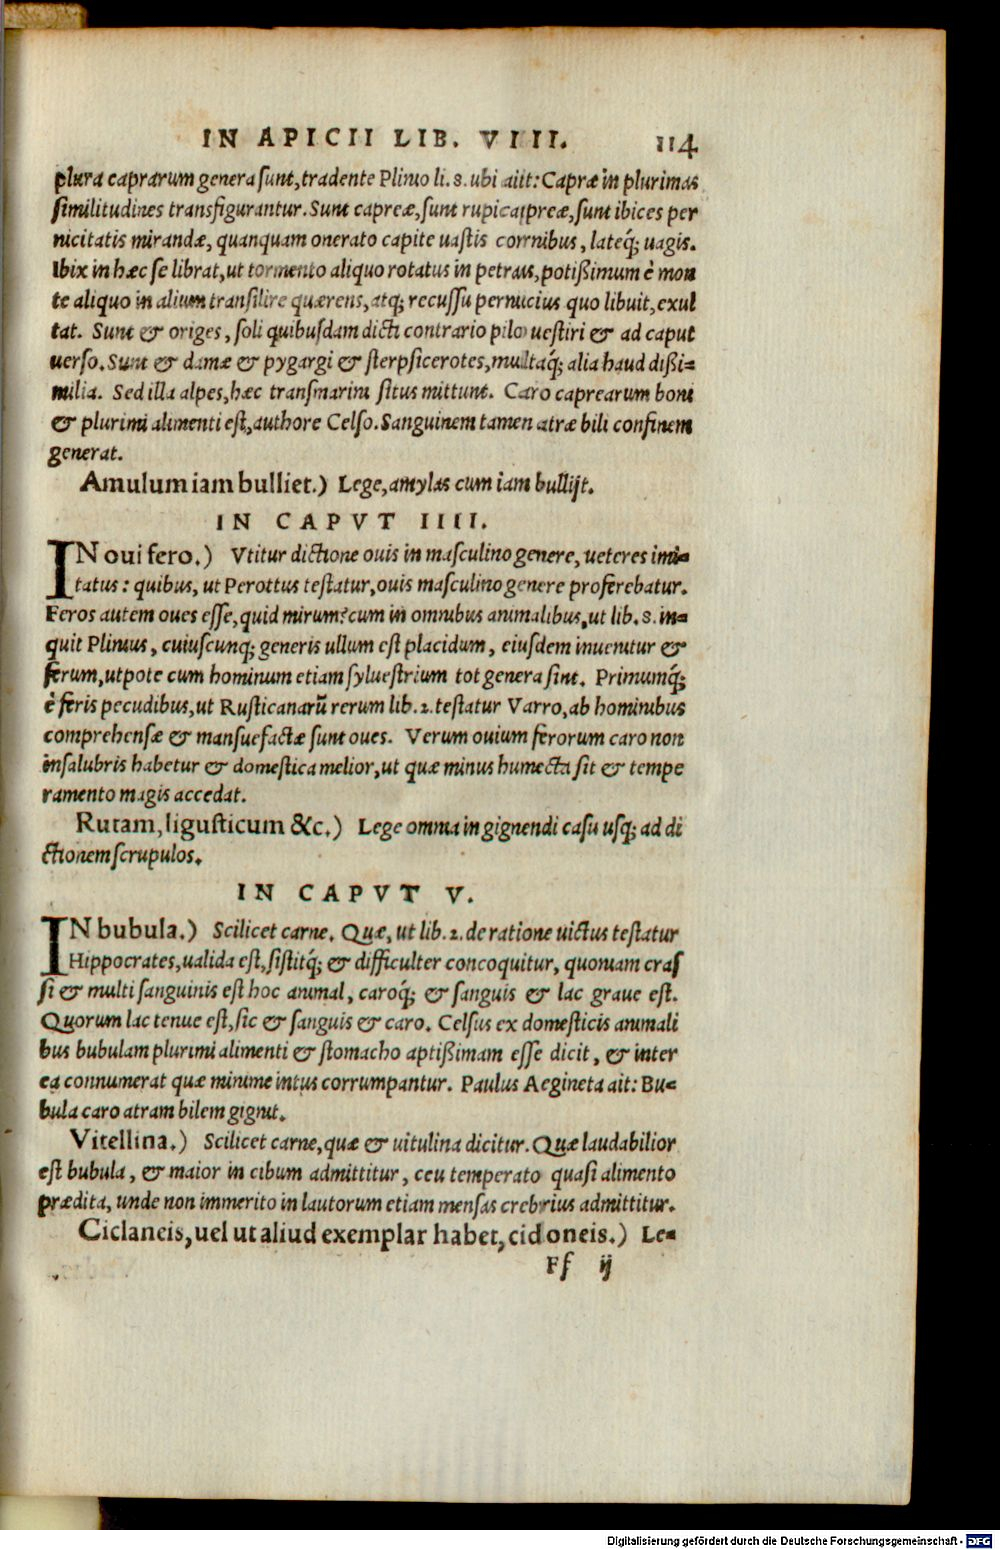 IN APICII LIB. VIII. 114
plura caprarum genera sunt, tradente Plinio li. 8. ubi aiit: Capræ in plurimas
similitudines transfigurantur. Sunt capreæ, sunt rupicapreæ, sunt ibices per
nicitatis mirandæ, quanquam onerato capite uastis cornibus, lateq́; uagis.
Ibix in hæc se librat, ut tormento aliquo rotatus in petras, potißimum è mon
te aliquo in alium transilire quærens, atq; recussu pernicius quo libuit, exul
tat. Sunt & origes, soli quibusdam dicti contrario pilo uestiri & ad caput
uerso. Sunt & damæ & pygargi & sterpsicerotes, multaq́; alia haud dißi-
milia. Sed illa alpes, hæc transmarini situs mittunt. Caro caprearum boni
& plurimi alimenti est, authore Celso. Sanguinem tamen atræ bili confinem
generat.
Amulum iam bulliet.) Lege, amylas cum iam bullijt.
IN CAPVT IIII.
IN oui fero.) Vtitur dictione ouis in masculino genere, ueteres imi-
tatus: quibus, ut Perottus testatur, ouis masculino genere proferebatur.
Feros autem oues esse, quid mirum? cum in omnibus animalibus, ut lib. 8. in-
quit Plinius, cuiuscunq; generis ullum est placidum, eiusdem inuenitur &
ferum, utpote cum hominum etiam syluestrium tot genera sint. Primumq́;
è feris pecudibus, ut Rusticanarũ rerum lib. 2. testatur Varro, ab hominibus
comprehensæ & mansuefactæ sunt oues. Verum ouium ferorum caro non
insalubris habetur & domestica melior, ut quæ minus humecta sit & tempe
ramento magis accedat.
Rutam, ligusticum &c.) Lege omnia in gignendi casu usq; ad di
ctionem scrupulos.
IN CAPVT V.
IN bubula.) Scilicet carne. Quæ, ut lib. 2. de ratione uictus testatur
Hippocrates, ualida est, sistitq́; & difficulter concoquitur, quoniam cras
si & multi sanguinis est hoc animal, caroq́; & sanguis & lac graue est.
Quorum lac tenue est, sic & sanguis & caro. Celsus ex domesticis animali
bus bubulam plurimi alimenti & stomacho aptißimam esse dicit, & inter
ea connumerat quæ minime intus corrumpantur. Paulus Aegineta ait: Bu-
bula caro atram bilem gignit.
Vitellina.) Scilicet carne, quæ & uitulina dicitur. Quæ laudabilior
est bubula, & maior in cibum admittitur, ceu temperato quasi alimento
prædita, unde non immerito in lautorum etiam mensas crebrius admittitur.
Ciclaneis, uel ut aliud exemplar habet, cidoneis.) Le-
Ff ij
Digitalisierung gefördert durch die Deutsche Forschungsgemeinschaft - DFG